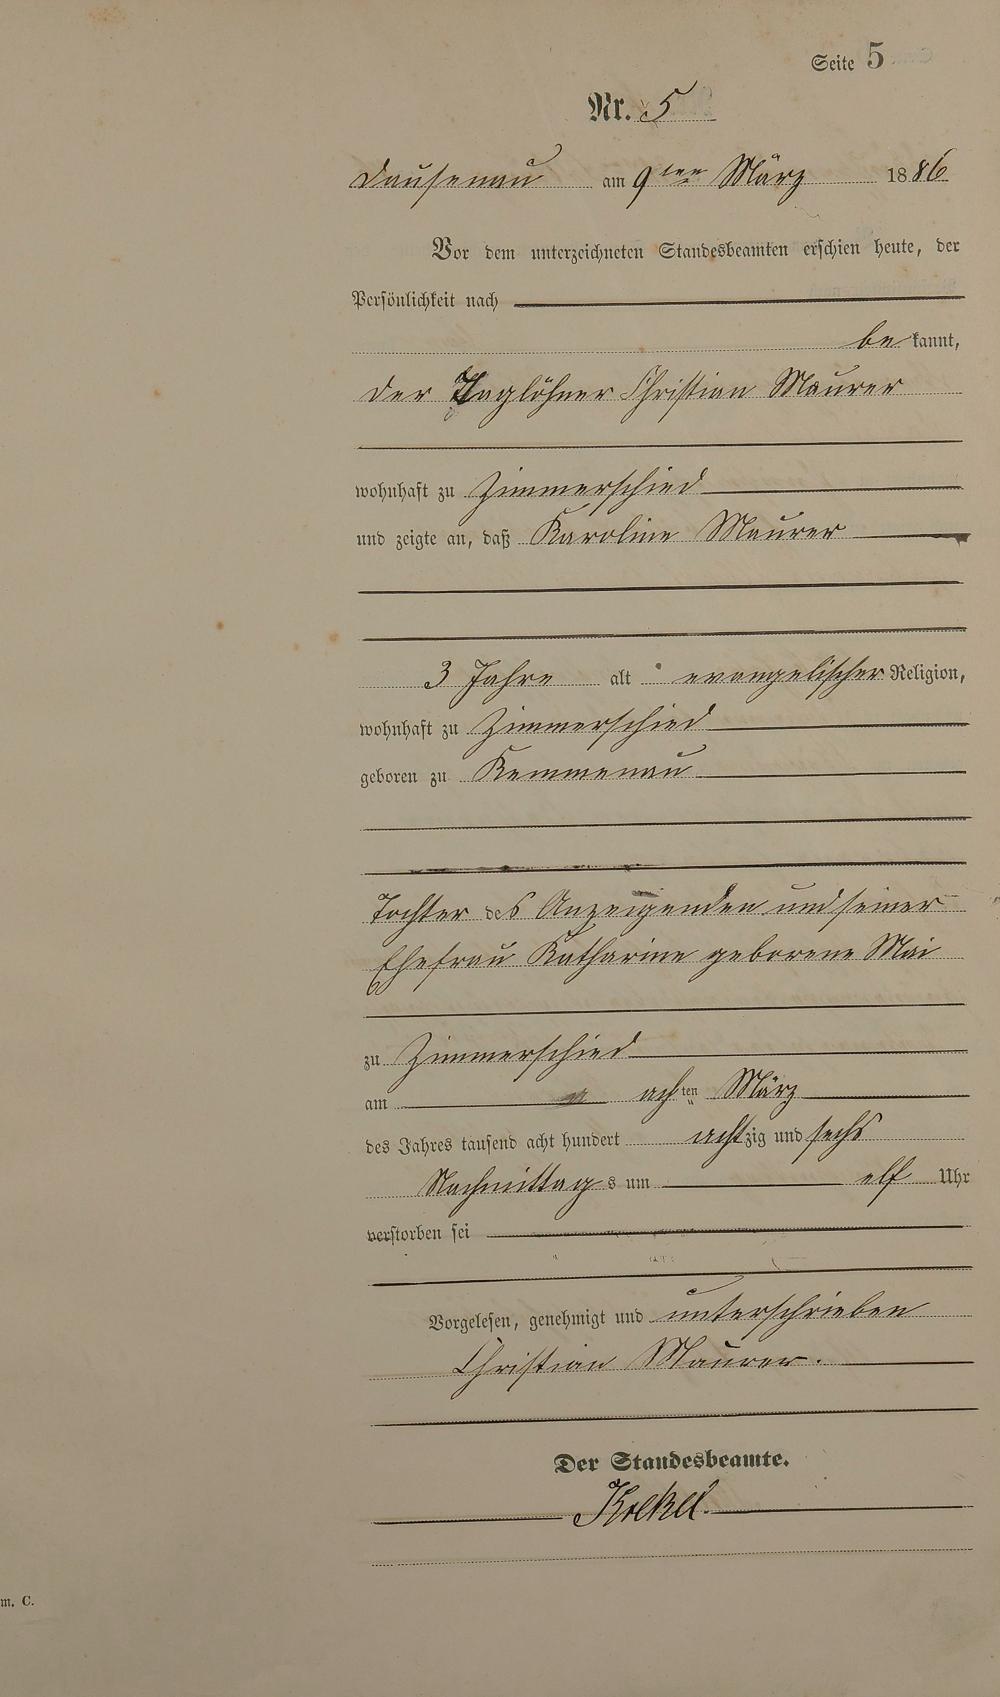 Seite 5
Nr. 5
Dausenau am 9ten März 1886
Vor dem unterzeichneten Standesbeamten erschien heute, der
Persönlichkeit nach
bekannt,
der Taglöhner Christian Maurer
wohnhaft zu Zimmerschied
und zeigte an, daß Karoline Maurer
3 Jahre alt evangelischer Religion,
wohnhaft zu Zimmerschied
geboren zu Kemmenau
Tochter des Anzeigenden und seiner
Ehefrau Katharine geborene Mai
zu Zimmerschied
am achten März
des Jahres tausend acht hundert achtzig und sechs
Nachmittags um elf Uhr
verstorben sei
Vorgelesen, genehmigt und unterschrieben
Christian Maurer.
Der Standesbeamte.
m. C.